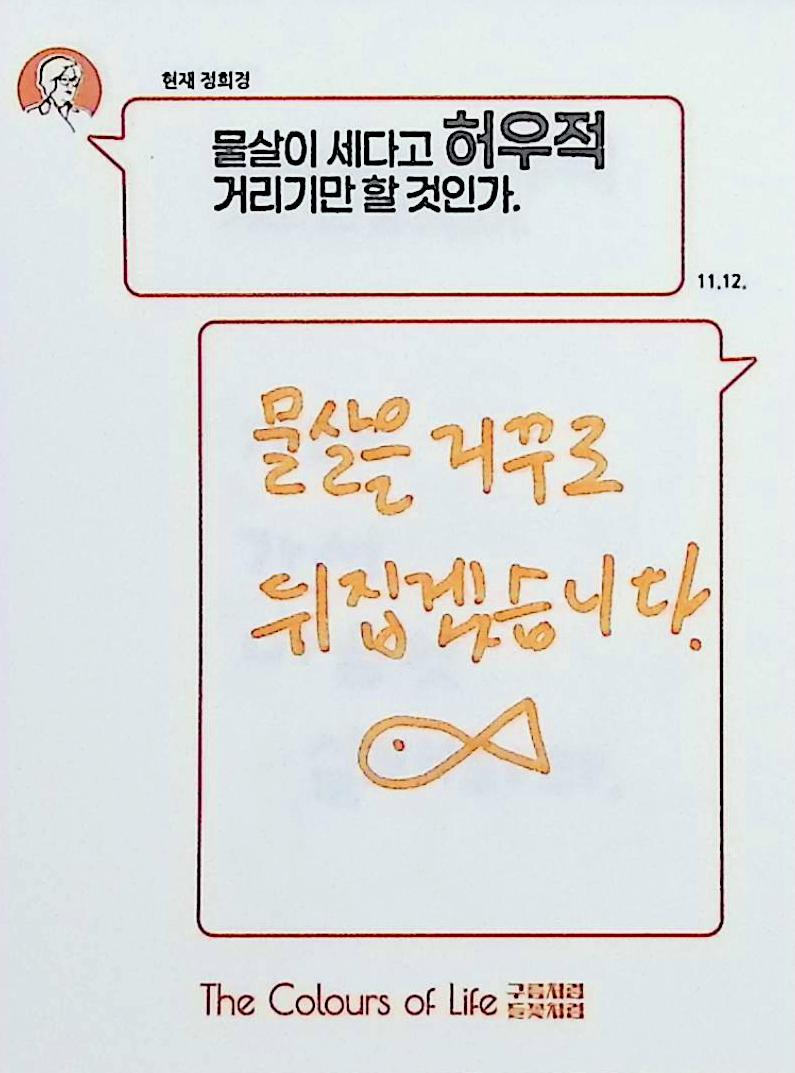 현재 정희경
물살이 세다고 허우적
거리기만 할 것인가.
11.12.
물살을 거꾸로
뒤집겠습니다.
The Colours of Life 구름처럼
들꽃처럼